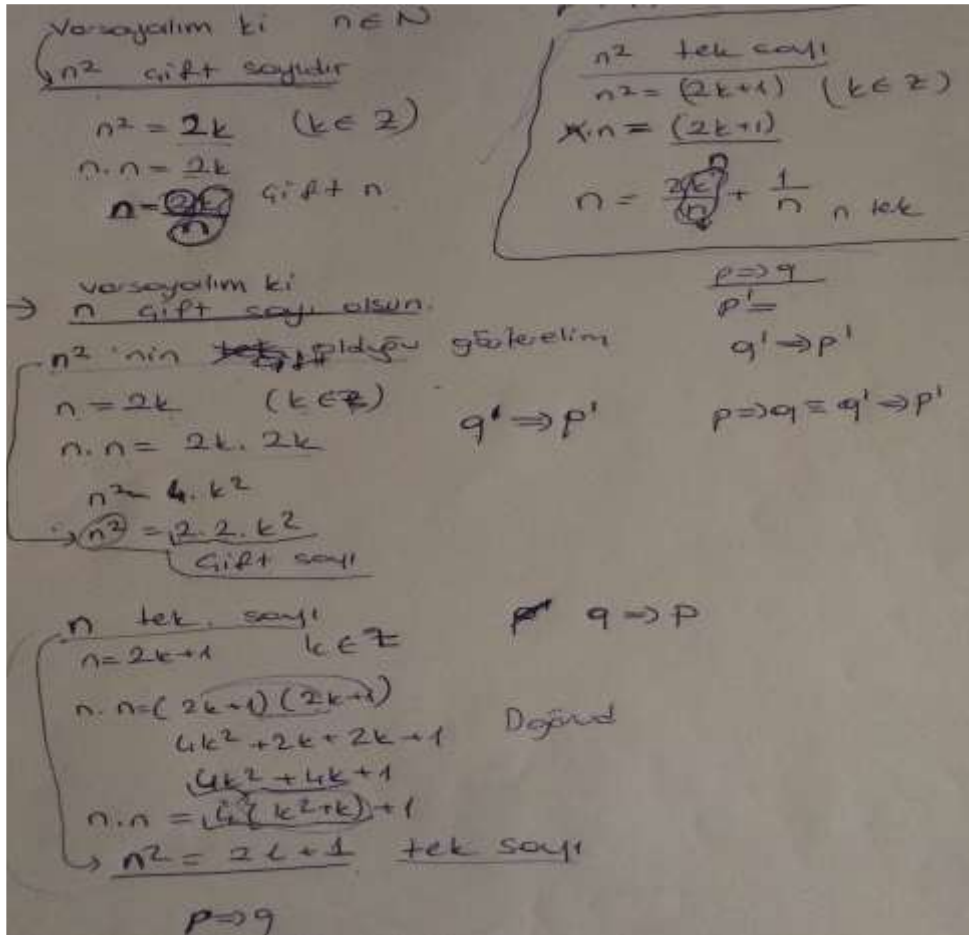 Varsayalım ki n ∈ N
n² çift sayıdır
n² = 2k (k ∈ Z)
n.n = 2k
n = 2k/n çift n
n² tek sayı
n² = (2k+1) (k ∈ Z)
n.n = (2k+1)
n = 2k/n + 1/n n tek
p => q
p' =
q' => p'
p => q ≡ q' => p'
varsayalım ki
→ n çift sayı olsun.
n² 'nin olduğu gösterelim
n = 2k (k ∈ Z)
q' => p'
n.n = 2k. 2k
n² = 4.k²
n² = 2.2.k²
çift sayı
n tek sayı
q => p
n = 2k+1 k ∈ Z
n.n = (2k+1)(2k+1)
4k² + 2k + 2k + 1
4k² + 4k + 1
n.n = 4(k²+k)+1
n² = 2L+1 tek sayı
p => q